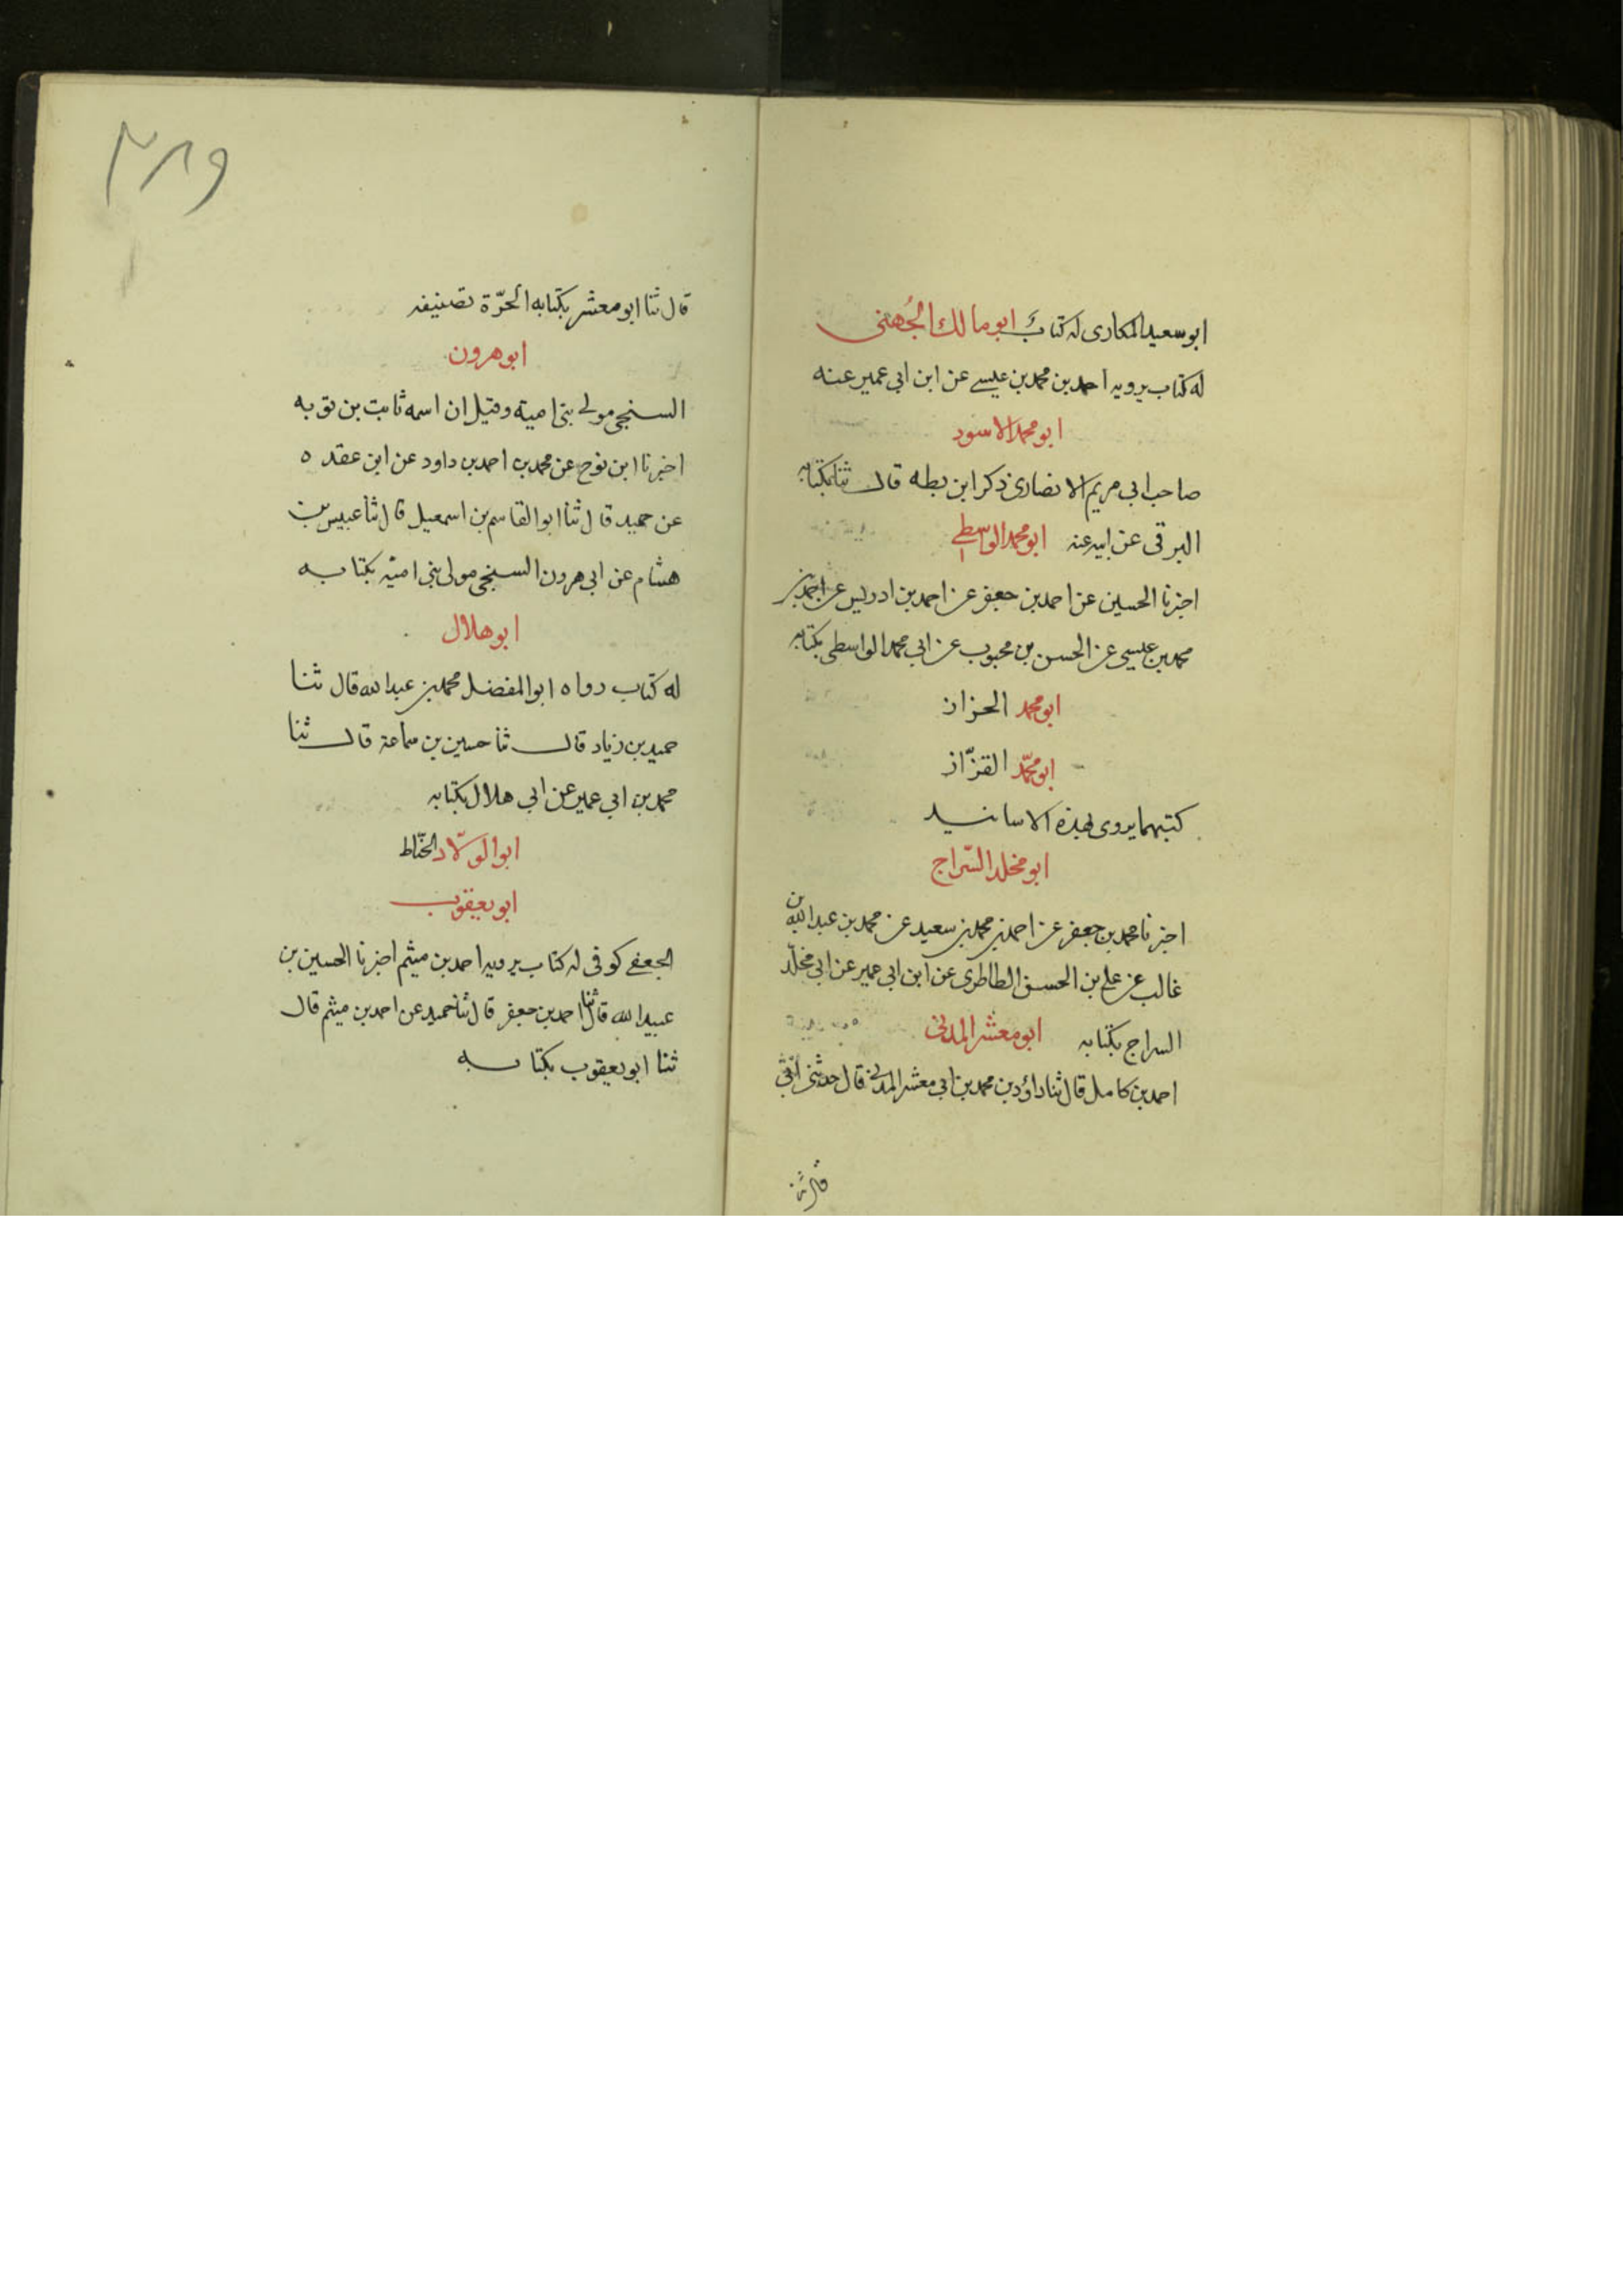 ابو سعيد المكارى له كتاب ابو مالك الجُهنى
له كتاب يرويه احمد بن محمد بن عيسى عن ابن ابى عمير عنه
ابو محمد الاسود
صاحب ابى مريم الانصارى ذكر ابن بطه قال ثنا بكتابه
البرقى عن ابيه عنه ابو محمد الواسطى
اخبرنا الحسين عن احمد بن جعفر عن احمد بن ادريس عن احمد بن
محمد بن عيسى عن الحسن بن محبوب عن ابى محمد الواسطى بكتابه
ابو محمد الخزاز
ابو محمّد القزّاز
كتبهما يروى بهذه الاسانيد
ابو مخلد السّراج
اخبرنا محمد بن جعفر عن احمد بن محمد بن سعيد عن محمد بن عبد الله بن
غالب عن على بن الحسن الطاطرى عن ابن ابى عمير عن ابى مخلّد
السراج بكتابه ابو معشر المدنى
احمد بن كامل قال ثنا داؤد بن محمد بن ابى معشر المدنى قال حدثنى ابى
قال ثنا
٣٨٩
قال ثنا ابو معشر بكتابه الحرّة تصنيفه
ابو هرون
السنجى مولى بنى امية وقيل ان اسمه ثابت بن توبه
اخبرنا ابن نوح عن محمد بن احمد بن داود عن ابن عقده
عن حميد قال ثنا ابو القاسم بن اسمعيل قال ثنا عبيس بن
هشام عن ابى هرون السنجى مولى بنى اميّه بكتابه
ابو هلال
له كتاب رواه ابو المفضل محمد بن عبد الله قال ثنا
حميد بن زياد قال ثنا حسين بن سماعة قال ثنا
محمد بن ابى عمير عن ابى هلال بكتابه
ابو الولّاد الحنّاط
ابو يعقوب
الجعفى كوفى له كتاب يرويه احمد بن ميثم اخبرنا الحسين بن
عبيد الله قال ثنا احمد بن جعفر قال ثنا حميد عن احمد بن ميثم قال
ثنا ابو يعقوب بكتابه